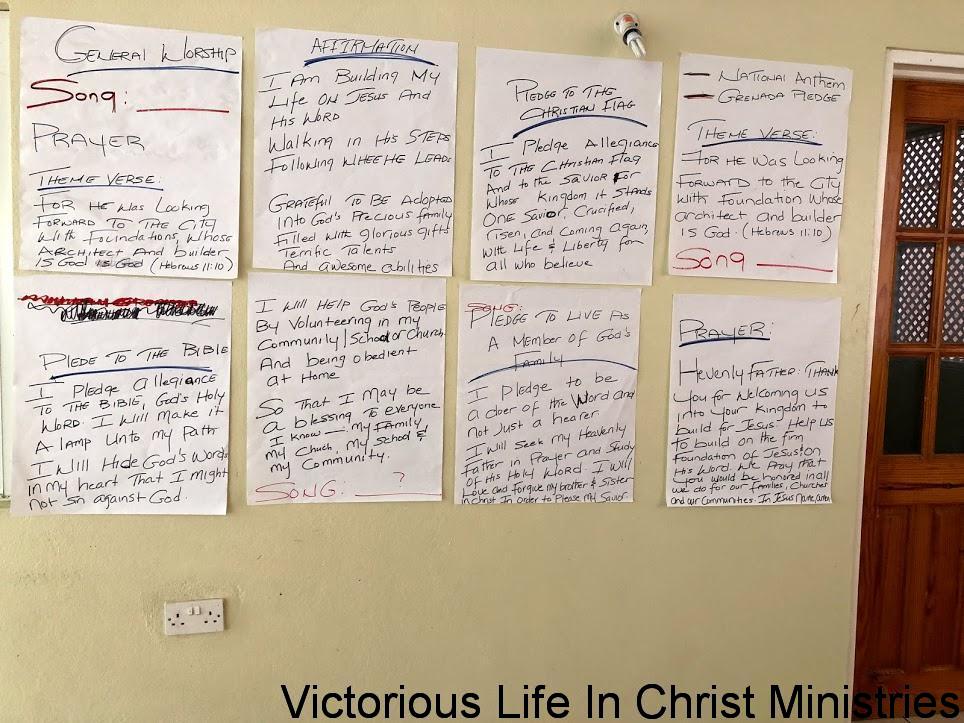 GENERAL WORSHIP
Song:
PRAYER
THEME VERSE:
FOR HE Was Looking
FORWARD TO THE CITY
With Foundations, Whose
ARCHITECT And builder
IS GOD IS GOD (Hebrews 11:10)
AFFIRMATION
I Am Building My
Life ON JESUS And
His WORD
Walking in His STEPS
Following WHEEHE LEADS
GRATEFUL TO BE Adopted
Into God's Precious family
Filled with glorious gifts
Terrific Talents
And awesome abilities
PLEDGE TO THE
CHRISTIAN FLAG
I Pledge Allegiance
TO THE Christian Flag
And to the Savior For
Whose Kingdom it Stands
ONE Savior, Crucified,
risen, and Coming Again,
With Life & Liberty for
all who believe
NATIONAL Anthem
GRENADA PLEDGE
THEME VERSE:
FOR HE Was Looking
FORWARD to the City
With foundation Whose
architect, and builder
IS God. (Hebrews 11:10)
Song
PLEDE TO THE BIBLE
I Pledge allegiance
TO THE BIBLE, God's Holy
Word. I Will make it
A lamp Unto my Path
I Will Hide God's Words
in my heart That I might
not sin against God.
I Will HELP God's People
By Volunteering in my
Community/School or Church
And being obedient
at Home
So that I may be
a blessing To everyone
I know — my Family
my Chuch, my School &
my Community.
SONG: ?
SONG:
PLEDGE TO LIVE AS
A Member of God's
Family
I Pledge to be
a doer of the Word and
not Just a hearer
I will Seek my Heavenly
Father in Prayer and Study
of His Holy Word. I Will
Love and Forgive my brother & Sister
in christ In order to Please my Savior
PRAYER:
Hevenly FATHER: THANK
You for Welcoming US
into Your Kingdom to
build for Jesus. Help US
to build on the firm
foundation of Jesus: On
His Word. We Pray that
You would be honored in all
we do for our families, Churches
And our Communities. In Jesus Name,
Victorious Life In Christ Ministries